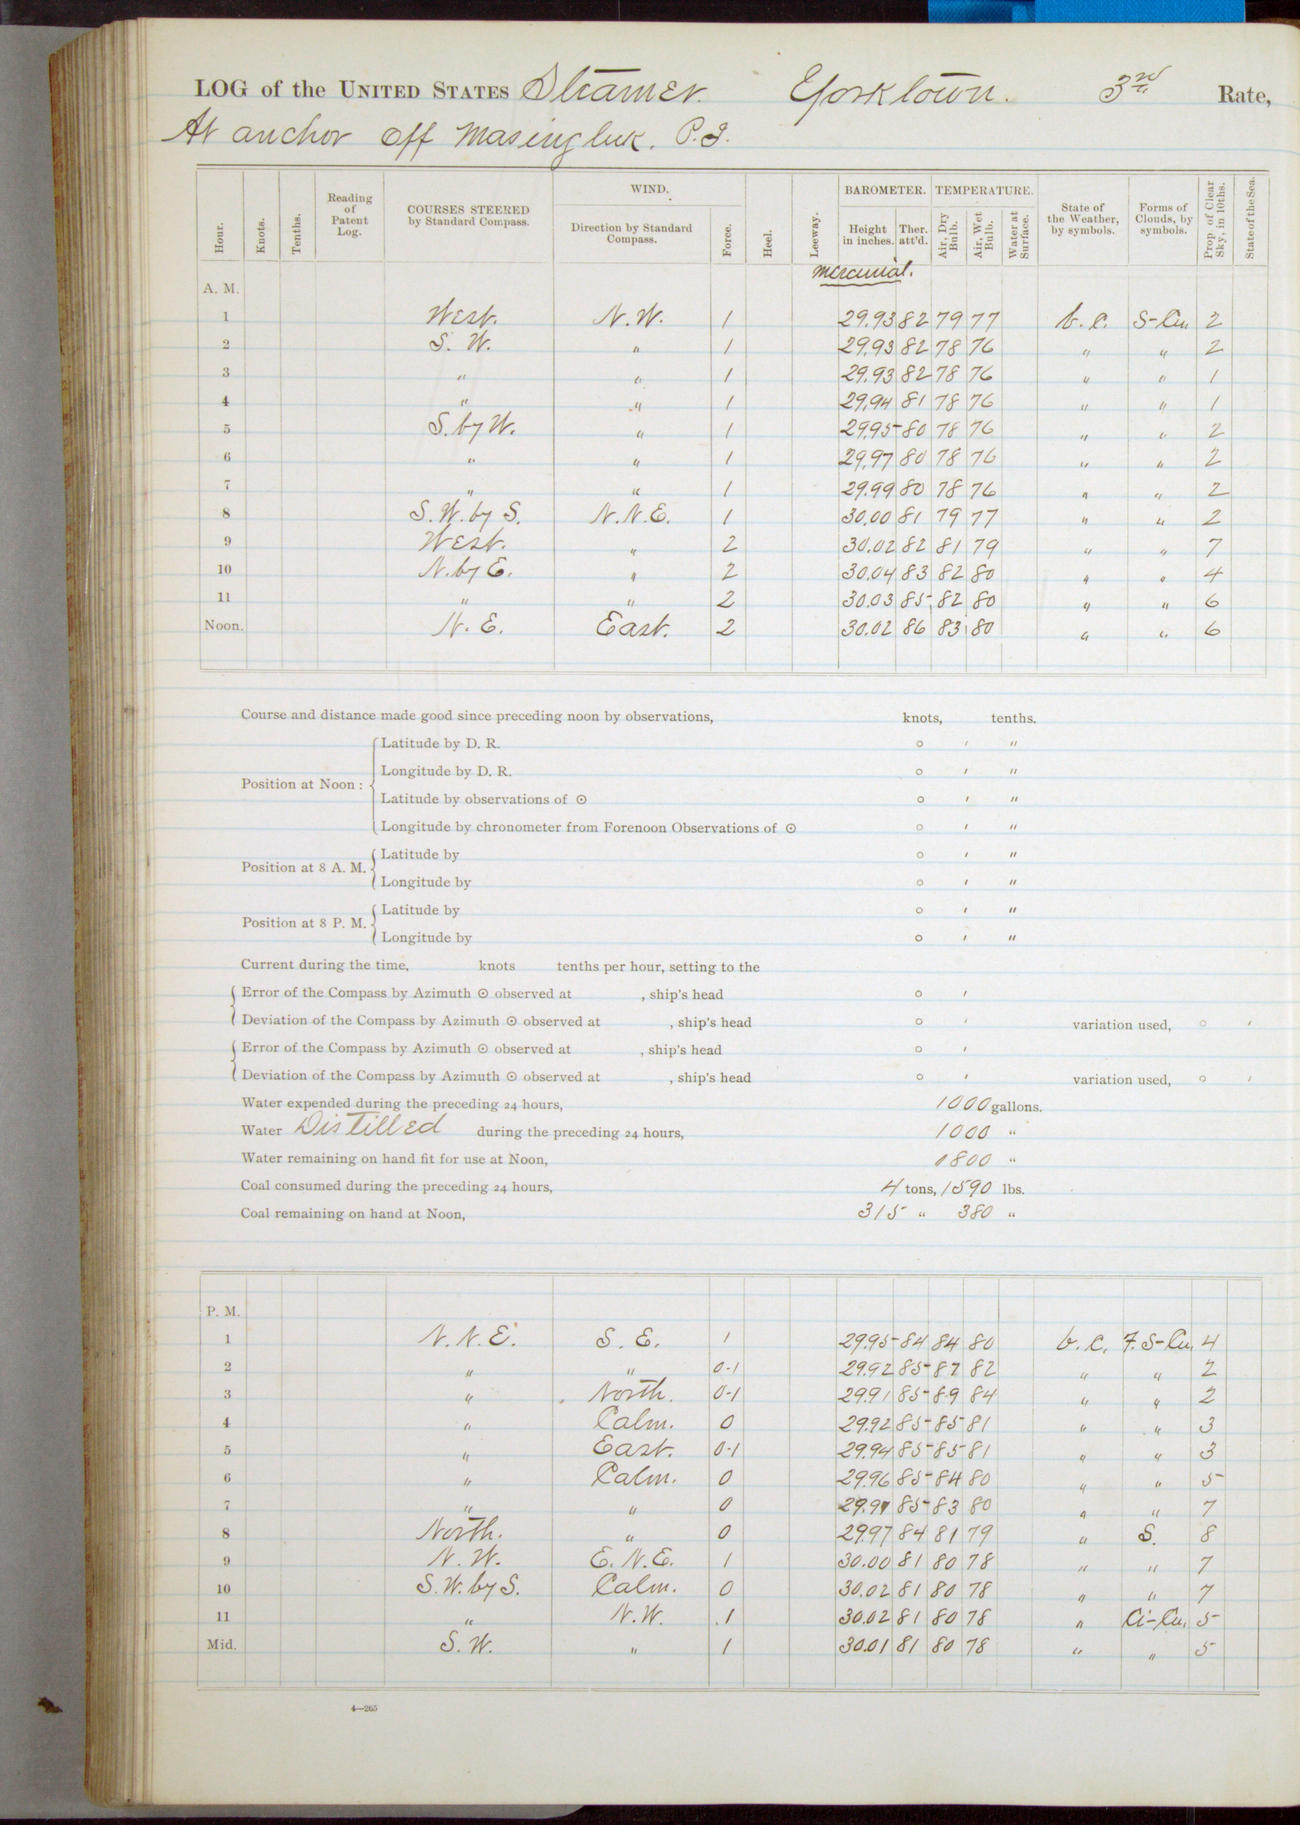 LOG of the UNITED STATES Steamer. Yorktown. 3rd Rate,
At anchor off Masingluk. P.I.
Hour. Knots. Tenths. Reading of Patent Log. COURSES STEERED by Standard Compass. WIND. Direction by Standard Compass. Force. Heel. Leeway. BAROMETER. Height in inches. Ther. att'd. TEMPERATURE. Air, Dry Bulb. Air, Wet Bulb. Water at Surface. State of the Weather, by symbols. Forms of Clouds, by symbols. Prop. of Clear Sky, in 10ths. State of the Sea.
mercurial.
A. M.
1 West. N.W. 1 29.93 82 79 77 b.c. S-Cu. 2
2 S. W. " 1 29.93 82 78 76 " " 2
3 " " 1 29.93 82 78 76 " " 1
4 " " 1 29.94 81 78 76 " " 1
5 S. by W. " 1 29.95 80 78 76 " " 2
6 " " 1 29.97 80 78 76 " " 2
7 " " 1 29.99 80 78 76 " " 2
8 S.W. by S. N.N.E. 1 30.00 81 79 77 " " 2
9 West. " 2 30.02 82 81 79 " " 7
10 N. by E. " 2 30.04 83 82 80 " " 4
11 " " 2 30.03 85 82 80 " " 6
Noon. N. E. East. 2 30.02 86 83 80 " " 6
Course and distance made good since preceding noon by observations, knots, tenths.
Position at Noon: Latitude by D. R. ° ′ ″
Longitude by D. R. ° ′ ″
Latitude by observations of ⊙ ° ′ ″
Longitude by chronometer from Forenoon Observations of ⊙ ° ′ ″
Position at 8 A. M. Latitude by ° ′ ″
Longitude by ° ′ ″
Position at 8 P. M. Latitude by ° ′ ″
Longitude by ° ′ ″
Current during the time, knots tenths per hour, setting to the
Error of the Compass by Azimuth ⊙ observed at , ship's head ° ′
Deviation of the Compass by Azimuth ⊙ observed at , ship's head ° ′ variation used, ° ′
Error of the Compass by Azimuth ⊙ observed at , ship's head ° ′
Deviation of the Compass by Azimuth ⊙ observed at , ship's head ° ′ variation used, ° ′
Water expended during the preceding 24 hours, 1000 gallons.
Water Distilled during the preceding 24 hours, 1000 "
Water remaining on hand fit for use at Noon, 1800 "
Coal consumed during the preceding 24 hours, 4 tons, 1590 lbs.
Coal remaining on hand at Noon, 315 " 380 "
P. M.
1 N. N. E. S. E. 1 29.95 84 84 80 b.c. F. S-Cu. 4
2 " " 0-1 29.92 85 87 82 " " 2
3 " North. 0-1 29.91 85 89 84 " " 2
4 " Calm. 0 29.92 85 85 81 " " 3
5 " East. 0-1 29.94 85 85 81 " " 3
6 " Calm. 0 29.96 85 84 80 " " 5
7 " " 0 29.97 85 83 80 " " 7
8 North. " 0 29.97 84 81 79 " S. 8
9 N. W. E. N. E. 1 30.00 81 80 78 " " 7
10 S. W. by S. Calm. 0 30.02 81 80 78 " " 7
11 " N.W. 1 30.02 81 80 78 " Ci-Cu. 5
Mid. S. W. " 1 30.01 81 80 78 " " 5
4—265